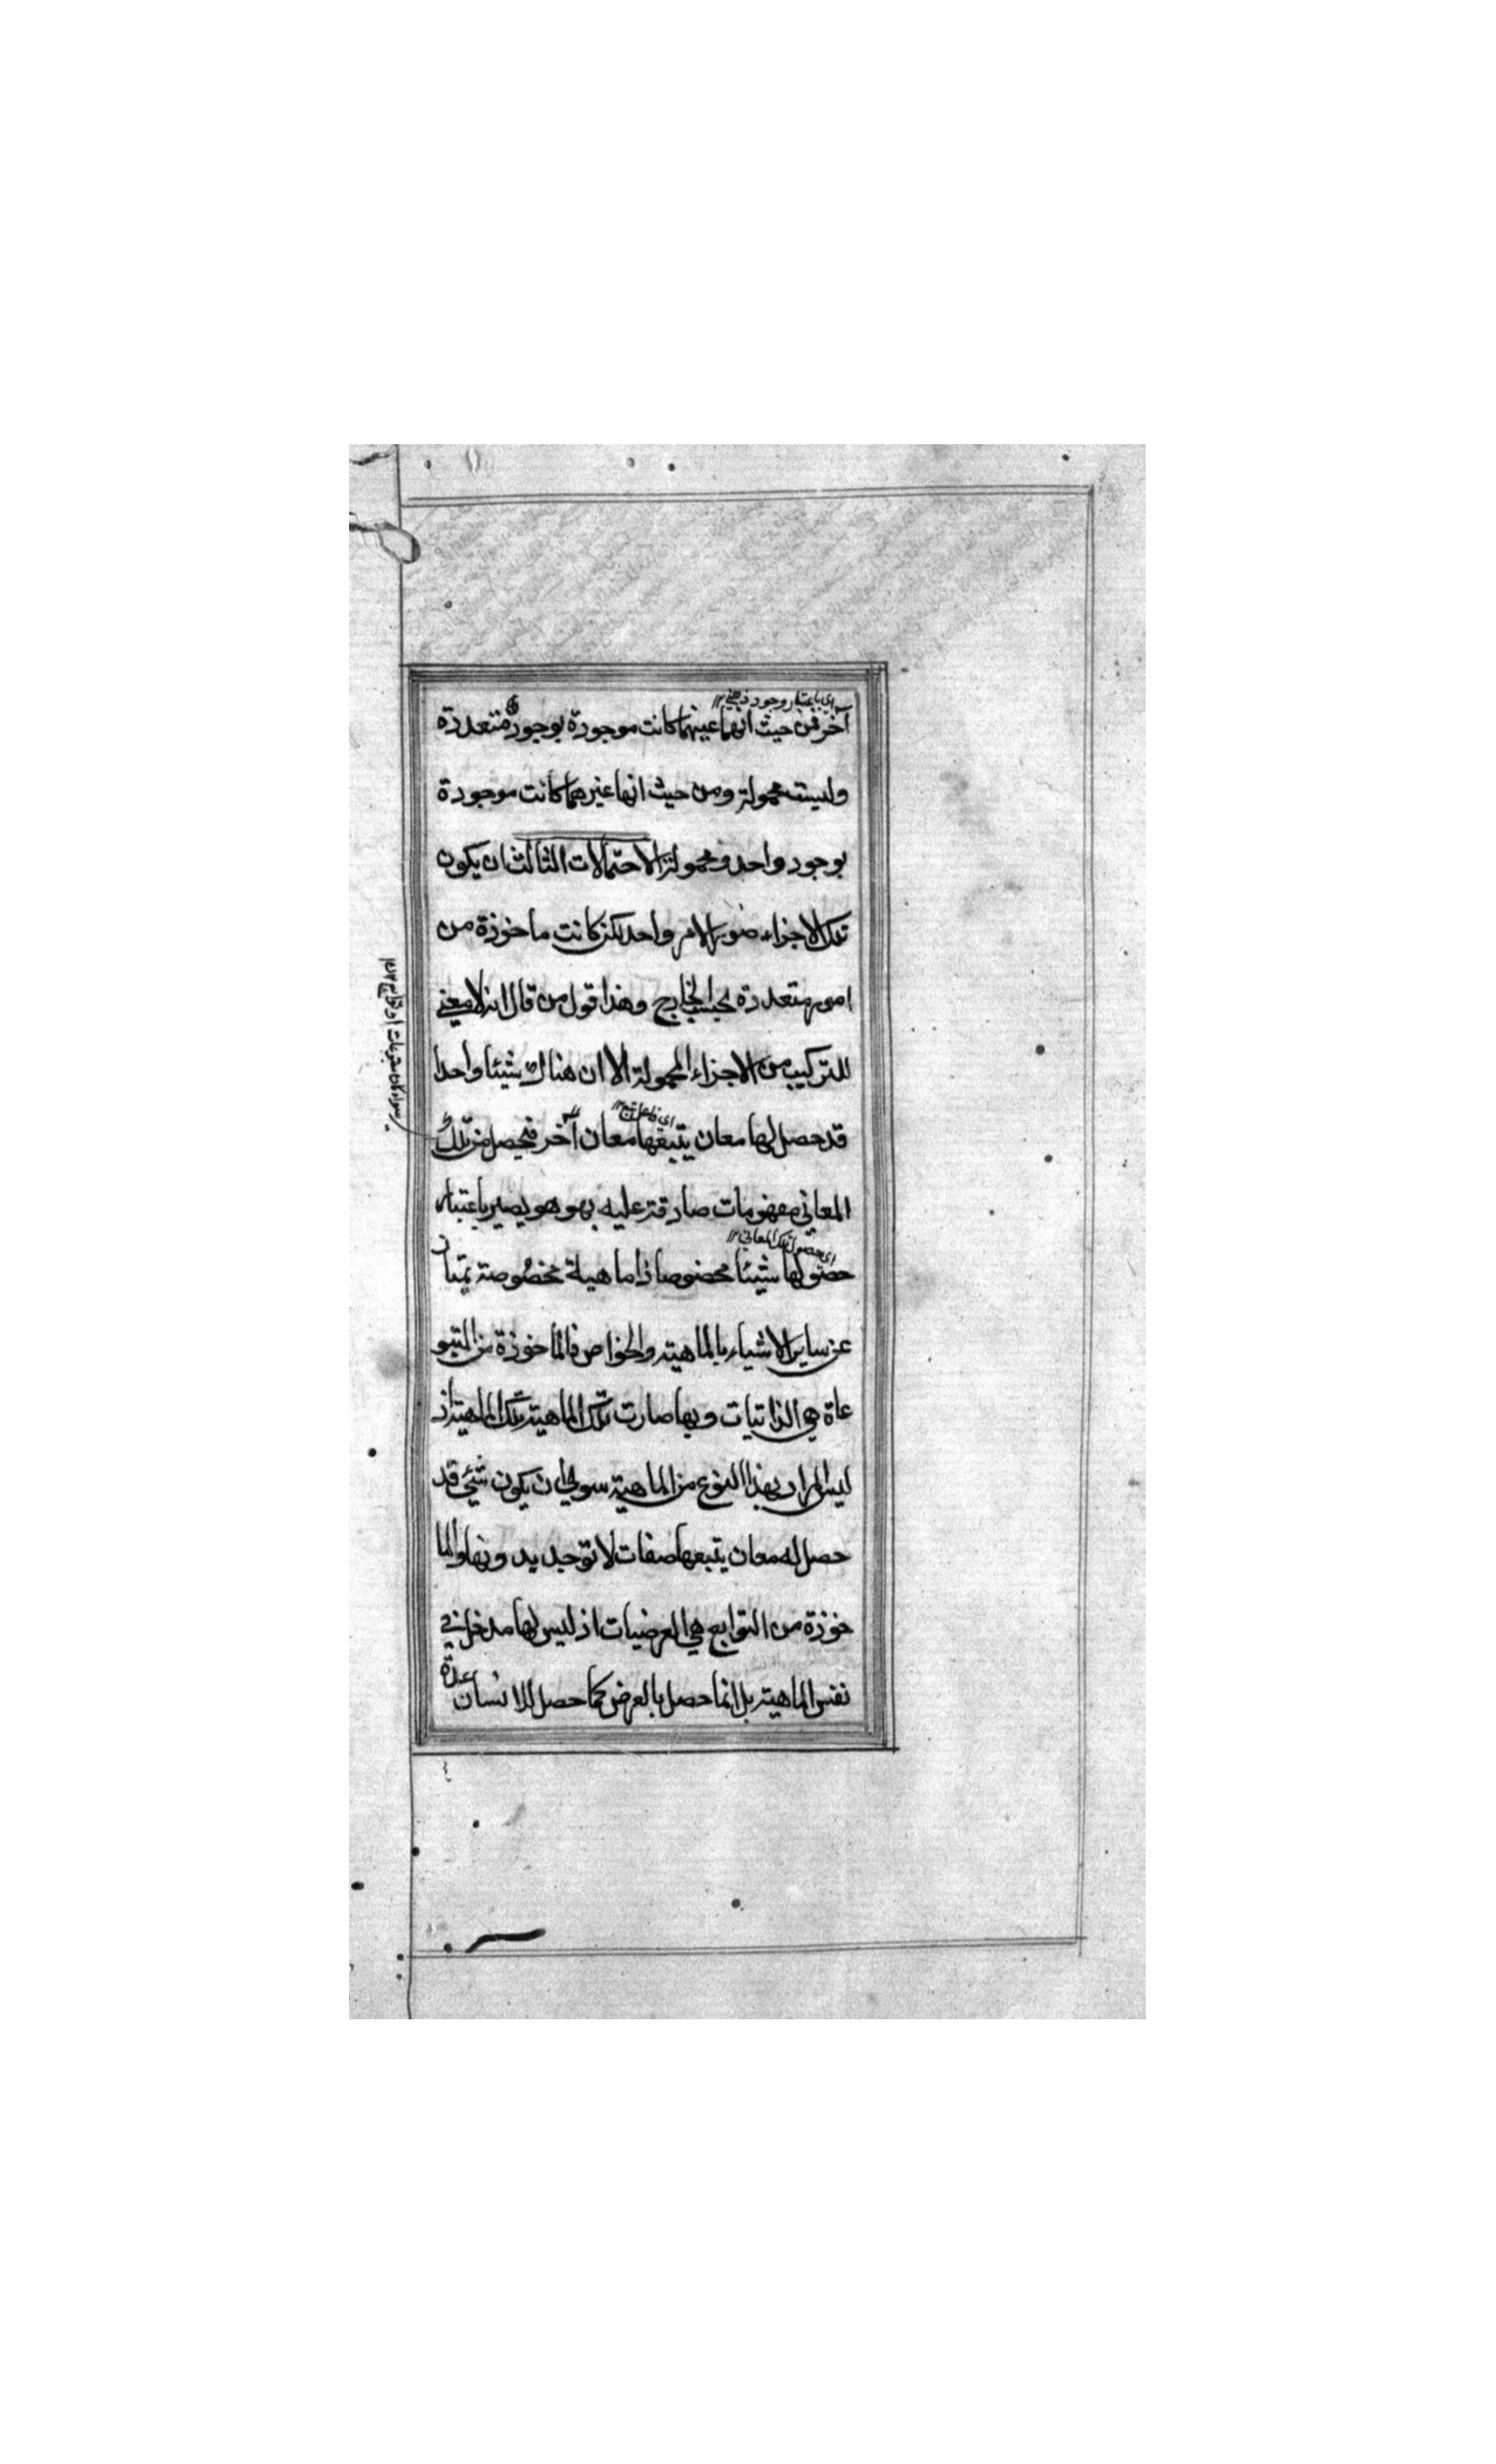 اى باعتبار وجود ذهني ١٢
آخر فمن حيث انها عينهما كانت موجودة بوجودة متعددة
وليست محمولة ومن حيث انها غيرهما كانت موجودة
بوجود واحد ومحمولة الاحتمالات الثالث ان يكون
تلك الاجزاء صورة لامر واحد لكن كانت ماخوذة من
امور متعددة بحسب الخارج وهذا قول من قال انه لا معنى
للتركيب من الاجزاء المحمولة الا ان هناك شيئا واحدا
قد حصل لها معان يتبعها معان آخر فيحصل من تلك
سواء كان متبوعات او توابع ١٢ منه
المعاني مفهومات صادقة عليه بهو هو يصير باعتبار
اى حصول تلك المعاني ١٢
حصولها شيئا مخصوصا ذا ماهية مخصوصة يمتاز
عن ساير الاشياء بالماهية والخواص فالماخوذة من المتبو
عاة هي الذاتيات وبها صارت تلك الماهية تلك الماهية اذ
ليس المراد بهذا النوع من الماهية سوى ان يكون شيئ قد
حصل له معان يتبعها صفات لا توجد بدونها والما
خوذة من التوابع هي العرضيات اذ ليس لها مدخل في
نفس الماهية بل انما حصل بالعرض كما حصل للانسان عدة